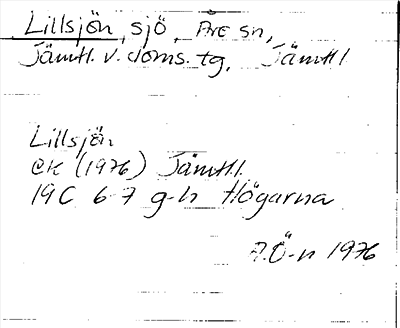 Lillsjön, sjö, Åre sn,
Jämtl. v. doms. tg, Jämtl.
Lillsjön
ek (1976) Jämtl.
19C 6-7 g-h Högarna
A.Ö-n 1976